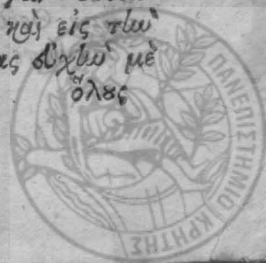 καὶ εἰς τὴν
ας εὐχὴν μὲ
ὅλους
ΠΑΝΕΠΙΣΤΗΜΙΟ ΚΡΗΤΗΣ